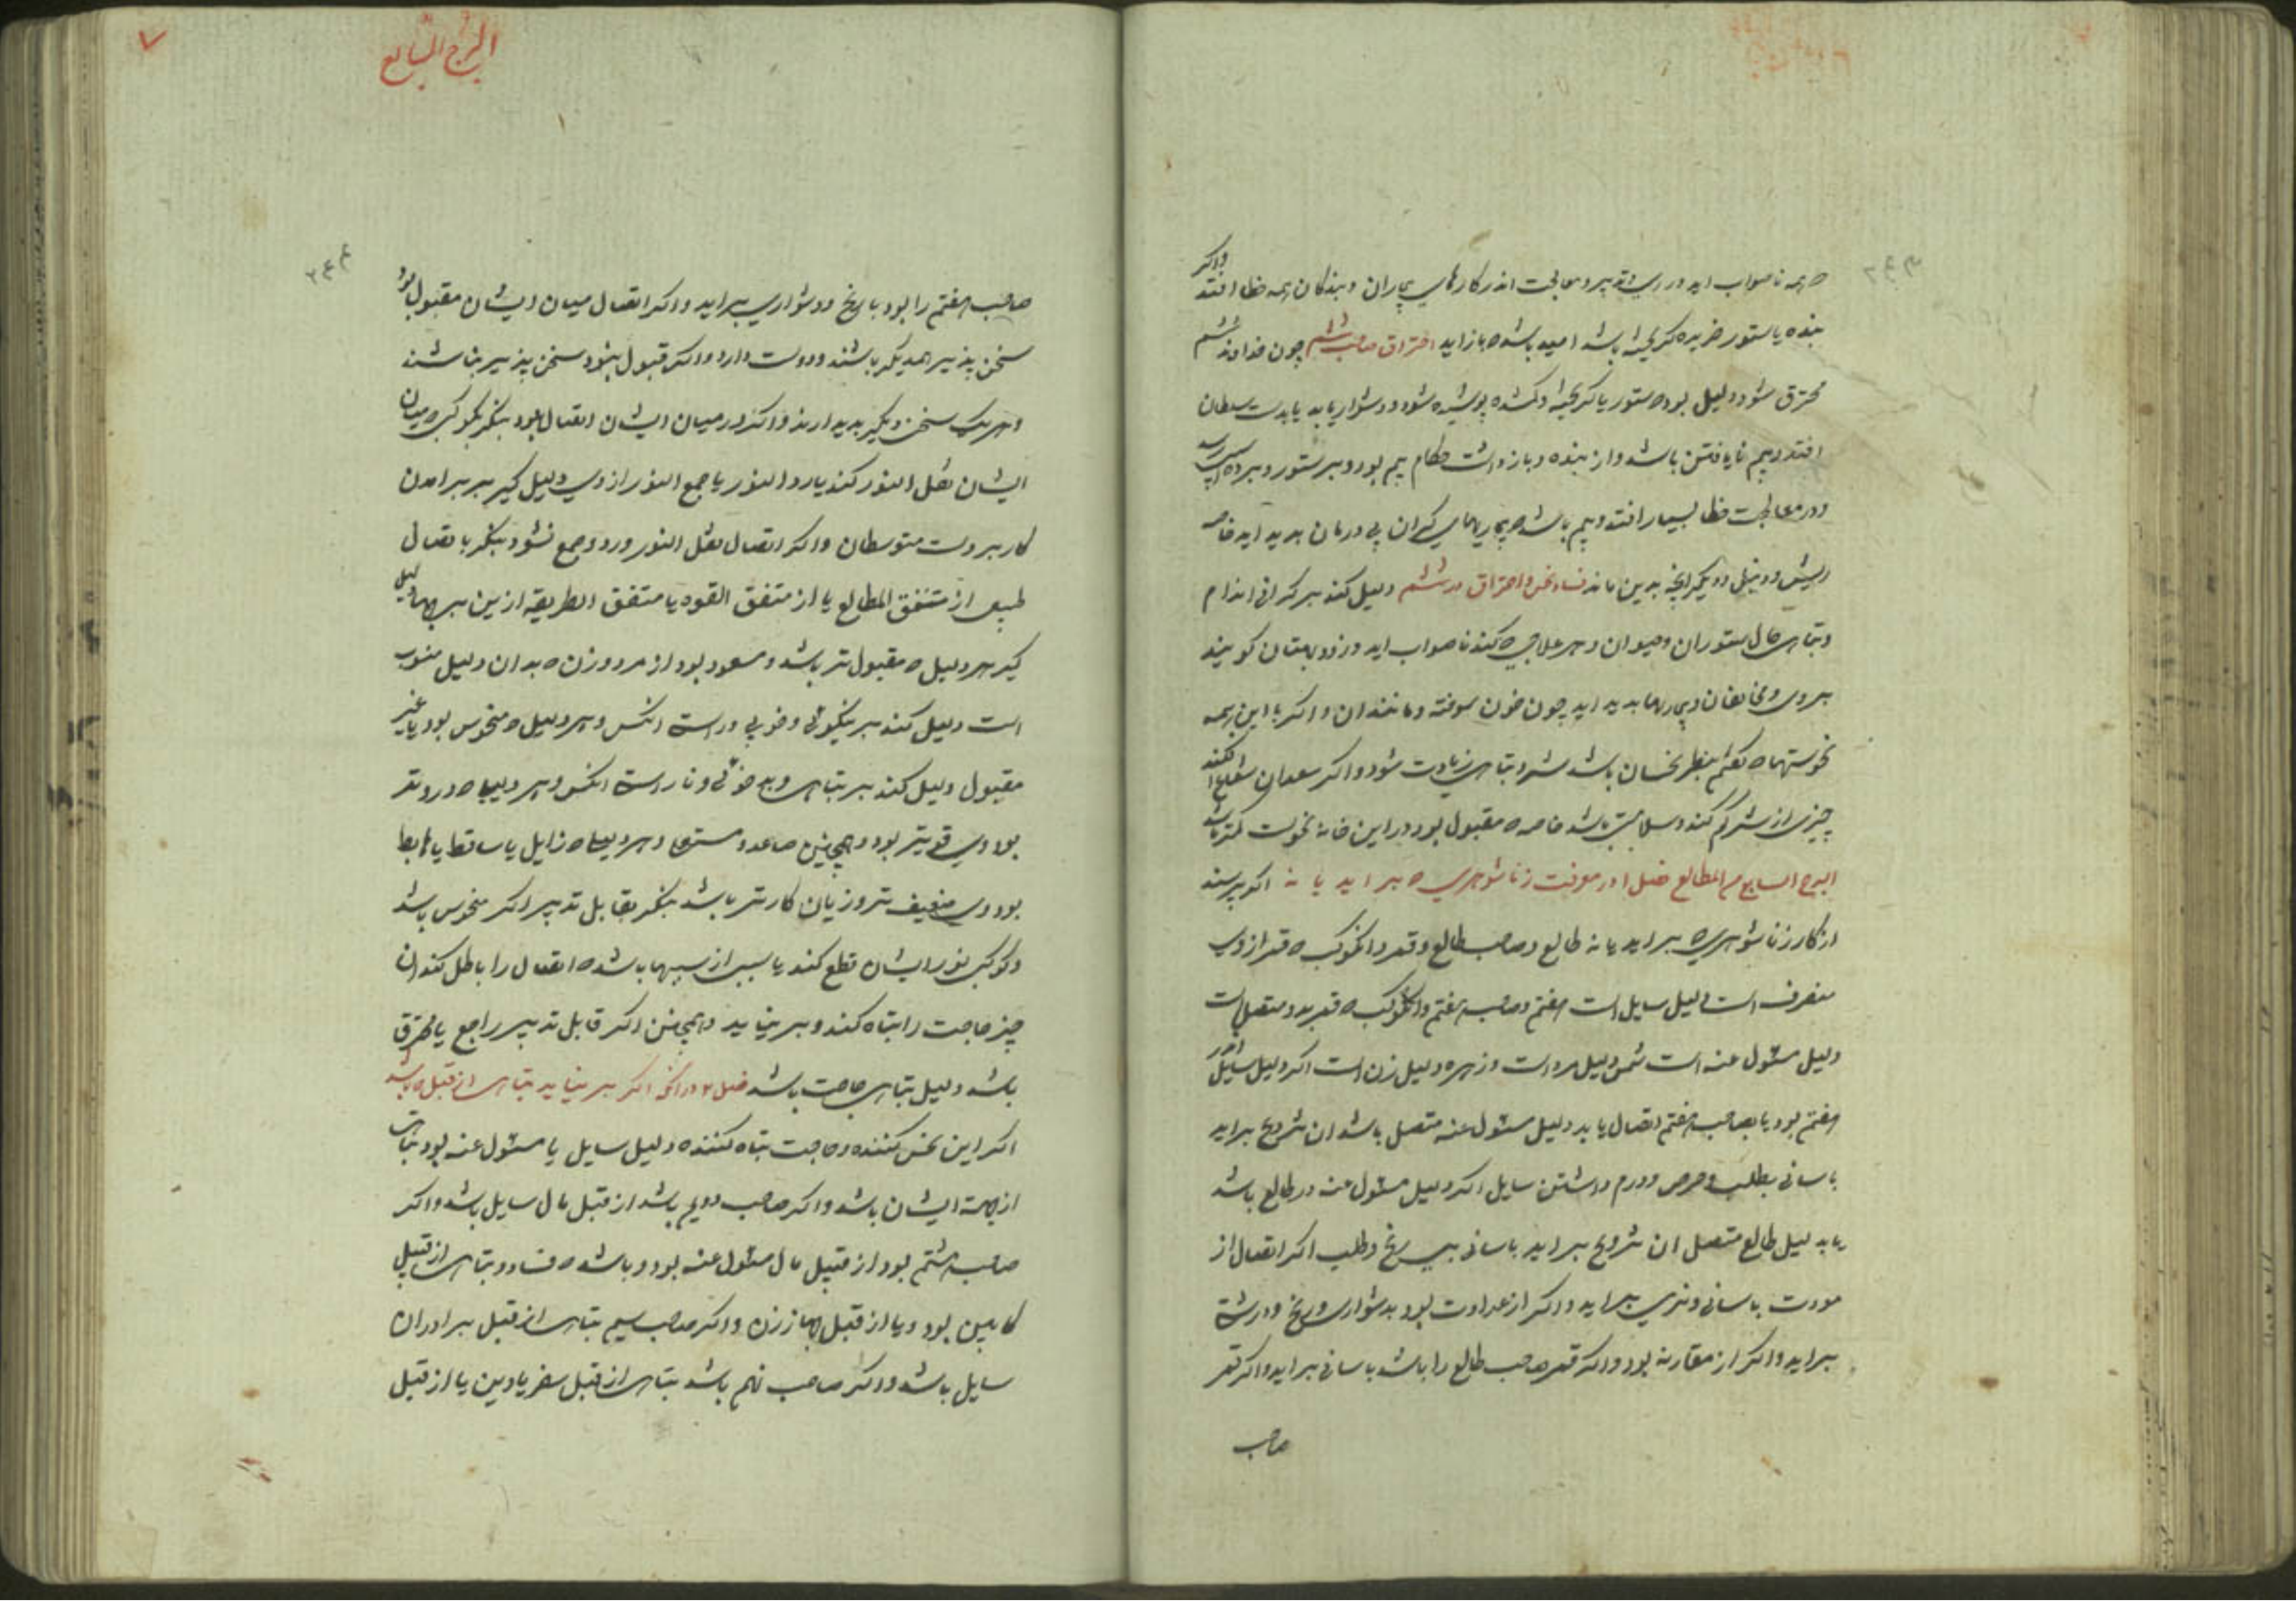 ٢٤٣
واکر
ه همه ناصواب اید در رای و تدبیر و معالجت اندر کارهای بیماران و بندکان همه خطا افتد
بنده یا ستور خریده کریخته باشد امید باشد ه باز اید احتراق صاحب ششم چون خداوند ششم
محترق شود دلیل بود ه ستور یا کریخته و کمشده پوشیده شود و دشوار یابد یا بدست سلطان
افتد و بیم نایافتن باشد و از بنده و بازداشت حکام بیم بود و بر ستور و برده اسیب رسد
و در معالجت خطا بسیار افتد و بیم باشد ه بیماریهای کران بی درمان بدید اید خاصه
ریش و دنبل و دیکر انچه بدین ماند فساد نحس و احتراق در ششم دلیل کند بر کرانی اندام
و تباهی حال ستوران و حیوان و هر علاجی ه کند ناصواب اید و زود بهتان کویند
بر وی و مخالفان و بیماریها بدید اید چون خون سوخته و مانند ان و اکر با این همه
نحوستها ه کفتم نظر نحسان باشد شر و تباهی زیادت شود و اکر سعدان شعاع افکند
چیزی از شر کم کند و سلامتی باشد خاصه ه مقبول بود در این خانه نحوست کمتر باشد
البرج السابع من المطالع فصل ا در معرفت زناشوهری ه بر اید یا نه اکر پرسند
از کار زناشوهری ه بر اید یا نه طالع و صاحب طالع و قمر و انکوکب ه قمر از وی
منصرف است دلیل سایل است هفتم و صاحب هفتم و انکوکب ه قمر بدو متصل است
دلیل مسئول عنه است شمس دلیل مرد است و زهره دلیل زن است اکر دلیل سایل اندر
هفتم بود یا بصاحب هفتم اتصال یا بد دلیل مسئول عنه متصل باشد ان تزویج بر اید
باسانی بطلب و حرص و درم داشتن سایل اکر دلیل مسئول عنه در طالع باشد
یا بدلیل طالع متصل ان تزویج بر اید باسانی بی رنج و طلب اکر اتصال از
مودت باسانی و نرمی بر اید و اکر از عداوت بود بدشواری و رنج و درشتی
بر اید و اکر از مقارنه بود و اکر قمر صاحب طالع را باشد باسانی بر اید و اکر قمر
صاحب
٧
البرج السابع
٢٤٤
صاحب هفتم را بود با رنج و دشواری بر اید و اکر اتصال میان ایشان مقبول بود
سخن پذیر همدیکر باشند و دوست دارد و اکر قبول نبود سخن پذیر نباشند
و هر یک سخن دیکر بدید ارند و اکر در میان ایشان اتصال نبود بنکر بکوکبی ه میان
ایشان نقل النور کند یا رد النور یا جمع النور از وی دلیل کیر بر بر امدن
کار بر دست متوسطان و اکر اتصال نقل النور و رد و جمع نشود بنکر باتصال
طبیعی از متفق المطالع یا از متفق القوه یا متفق الطریقه ازین بر بهما دلیل
کیر هر دلیل ه مقبول تر باشد و مسعود بود از مرد و زن ه بدان دلیل منسوب
است دلیل کند بر نیکوئی و خوبی و راستی انکس و هر دلیل ه منحوس بود یا غیر
مقبول دلیل کند بر تباهی و بد خوئی و ناراستی انکس و هر دلیل ه در وتد
بود وی قویتر بود و همچنین صاعد و مستولی و هر دلیل ه زایل یا ساقط یا هابط
بود وی ضعیف تر و زیان کارتر باشد بنکر بقابل تدبیر اکر منحوس باشد
و کوکبی نور ایشان قطع کند یا سببی از سببها باشد ه اتصال را باطل کند ان
چیز حاجت را تباه کند و بر نیاید و همچنین اکر قابل تدبیر راجع یا محترق
باشد دلیل تباهی حاجت باشد فصل ٢ در انکه اکر بر نیاید تباهی از قبل ه باشد
اکر این نحس کننده و حاجت تباه کننده دلیل سایل یا مسئول عنه بود تباهی
از جهت ایشان باشد و اکر صاحب دویم باشد از قبل مال سایل باشد و اکر
صاحب هشتم بود از قبل مال مسئول عنه بود و باشد ه فساد و تباهی از قبل
کابین بود و یا از قبل جهاز زن و اکر صاحب سیم تباهی از قبل برادران
سایل باشد و اکر صاحب نهم باشد تباهی از قبل سفر یا دین یا از قبل